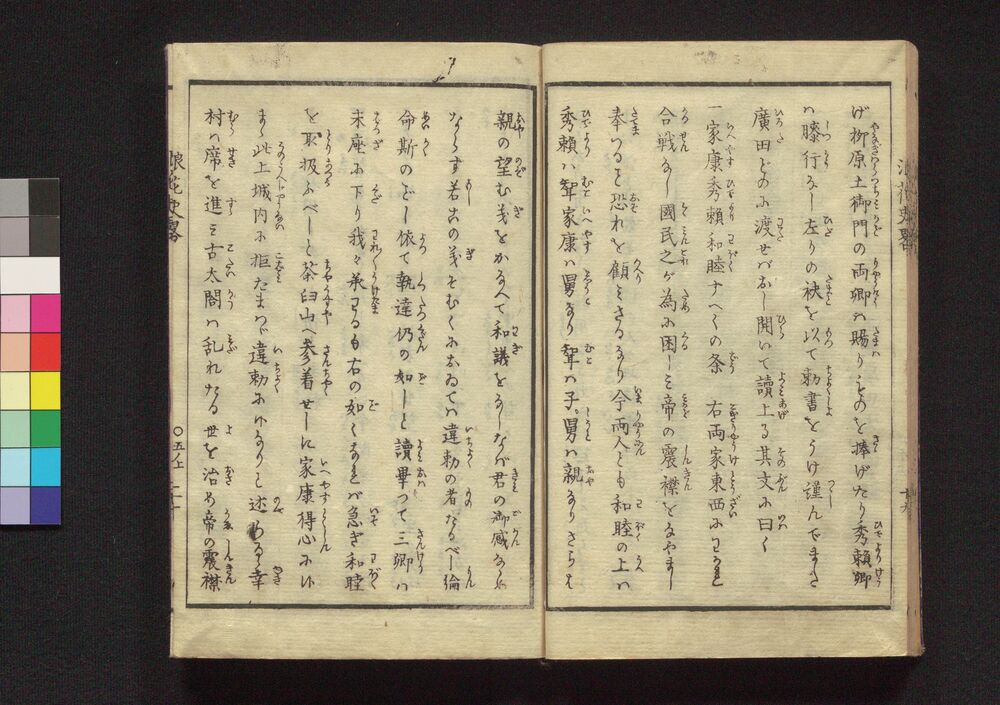 げ柳原土御門の両卿ハ賜りものを捧げたり秀頼卿
ハ膝行なし左りの袂を以て勅書をうけ謹んでまさ
廣田どのに渡せバおし開いて讀上る其文に曰く
一家康秀頼和睦すべくの条 右両家東西にわかれ
合戦なし國民之が為に困しミ帝の震襟をなやまし
奉つるを恐れを顧ミさるなり今両人とも和睦の上ハ
秀頼ハ聟家康ハ舅なり聟ハ子。舅ハ親なりさらば
親の望む義をかなへて和議をなしなバ君の御感なゝめ
ならす若右の義そむくにおゐてハ違勅の者たるべし倫
命斯のごとし依て執達仍の如しと讀畢つて三卿ハ
末座に下り我々承はるも右の如くなれバ急ぎ和睦
を取扱ふべしと茶臼山へ参着せしに家康得心にけ
まゝ此上城内に拒たまハゞ違勅にけなりと述らるゝ幸
村ハ席を進ミ古太閤ハ乱れたる世を治め帝の震襟
浪花史略
〇五ノ上